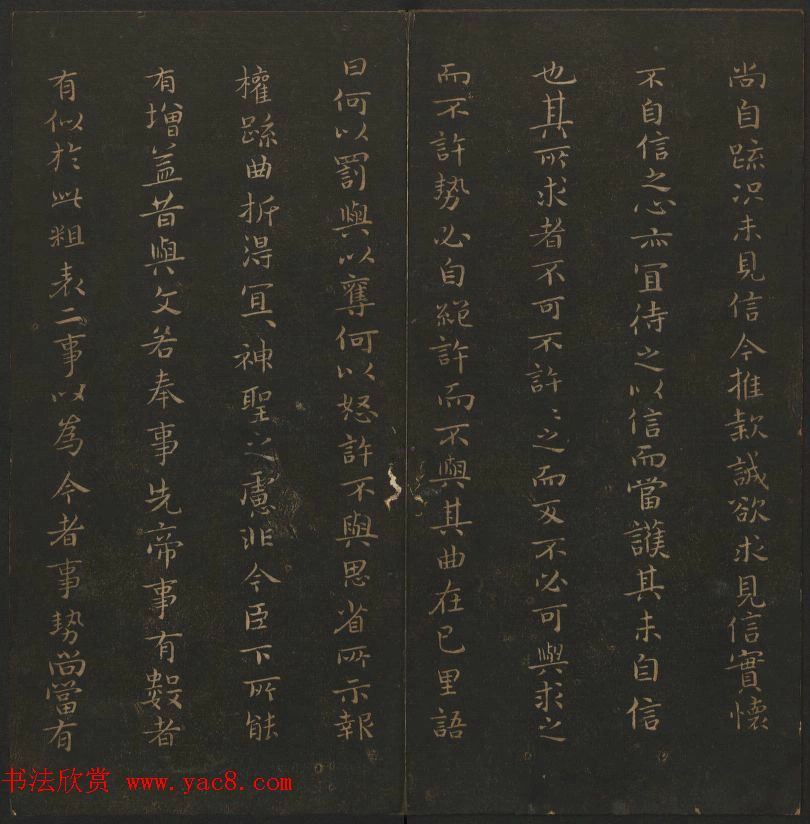 尚自疏况未見信今推款誠欲求見信實懷
不自信之心亦宜待之以信而當護其未自信
也其所求者不可不許許之而反不必可與求之
而不許勢必自絕許而不與其曲在己里語
曰何以罰與以奪何以怒許不與思省所示報
權疏曲折得宜神聖之慮非今臣下所能
有增益昔與文若奉事先帝事有數者
有似於此粗表二事以為今者事勢尚當有
书法欣赏 www.yac8.com